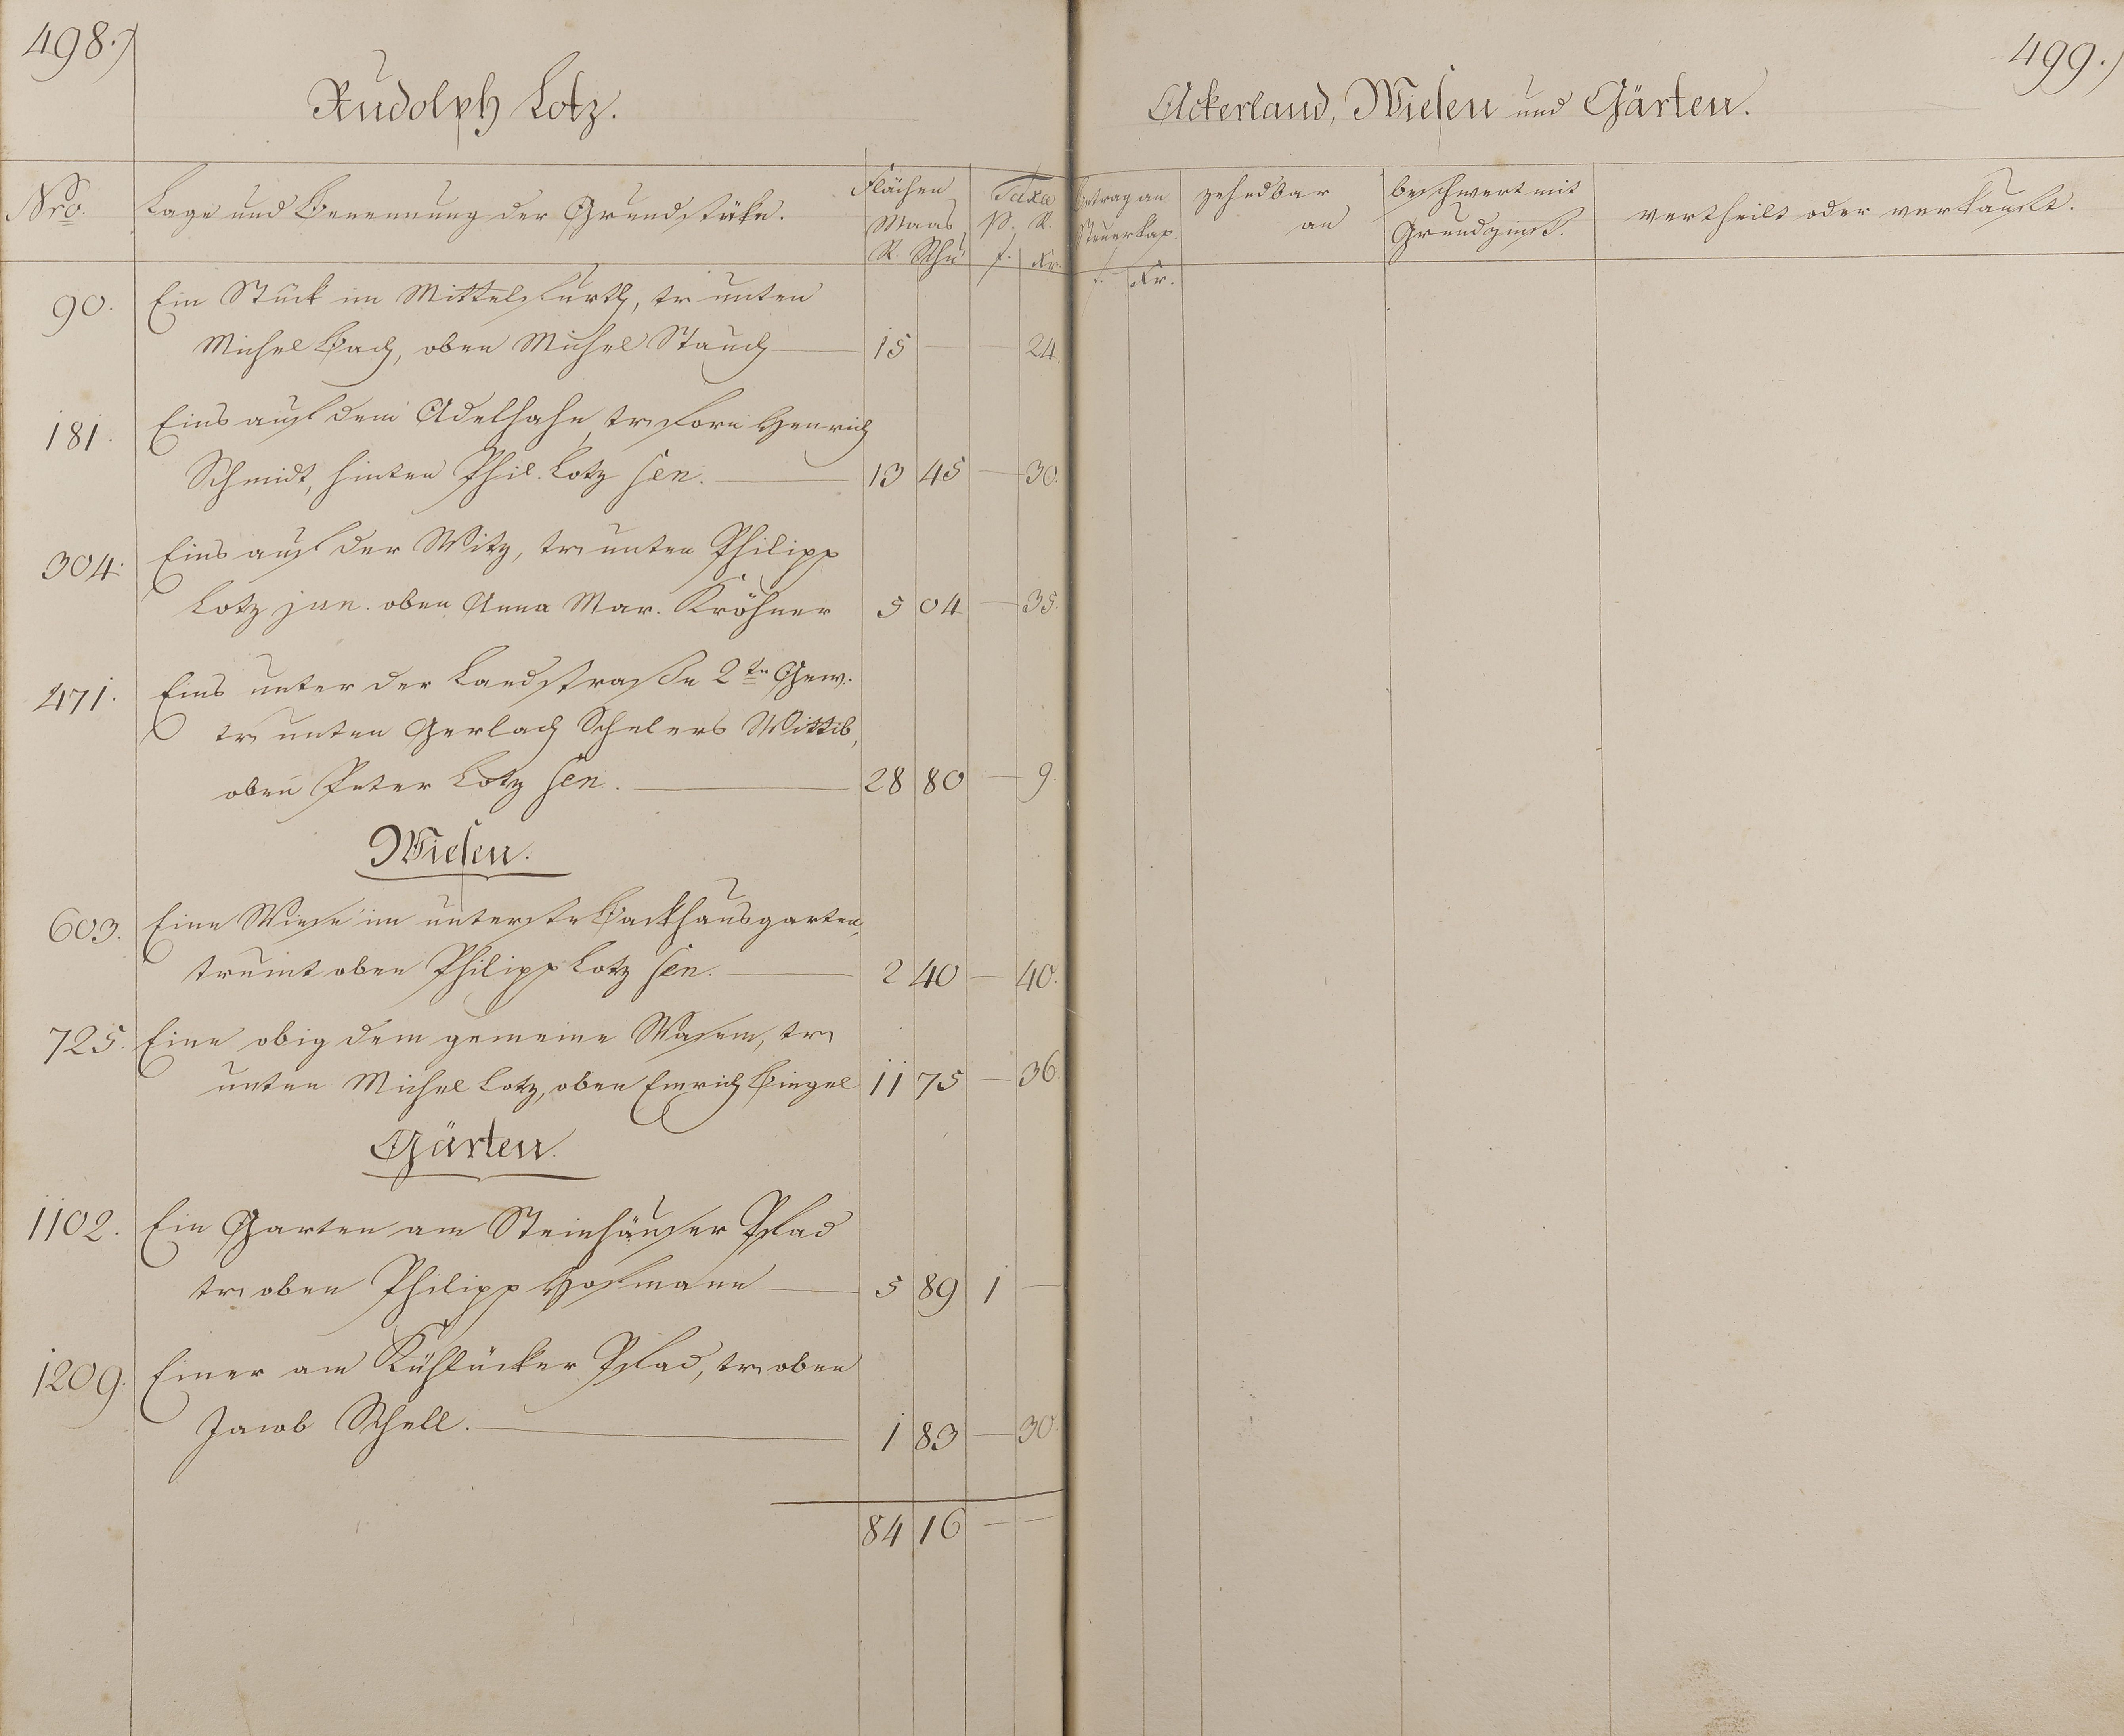 498.)
Rudolph Lotz.
Nro. Lage und Benennung der Grundstüke. Flächen Maas R. Schu Taxa p. R. f. Kr.
90. Ein Stück im Mittelfurth, tr unten
Michel Bach, oben Michel Stauch 15 — — 24.
181. Eins auf dem Adelhahn, tr. forn Henrich
Schmidt, hinten Phil. Lotz sen. 13 45 — 30.
304. Eins auf der Witz, tr. unten Philipp
Lotz jun. oben Anna Mar. Kröhner 5 04 — 35.
471. Eins unter der Landstraße 2te Gew.
tr. unten Gerlach Schelers Wittib,
oben Peter Lotz sen. 28 80 — 9.
Wiesen.
603. Eine Wiese im unterste Backhausgarten,
trumt oben Philipp Lotz sen. 2 40 — 40.
725. Eine obig dem gemeine Wasem, tr.
unten Michel Lotz, oben Emrich Bingel 11 75 — 36.
Gärten.
1102. Ein Garten am Steinhäuser Pfad
tr. oben Philipp Hofmann 5 89 1 —
1209. Einer am Pfad, tr. oben
Jacob Schell. 1 83 — 30.
84 16 — —
499.)
Ackerland, Wiesen und Gärten.
Betrag an Steuerkap. f. Kr. zehndbar an beschwert mit Grundzins. vertheilt oder verkauft.